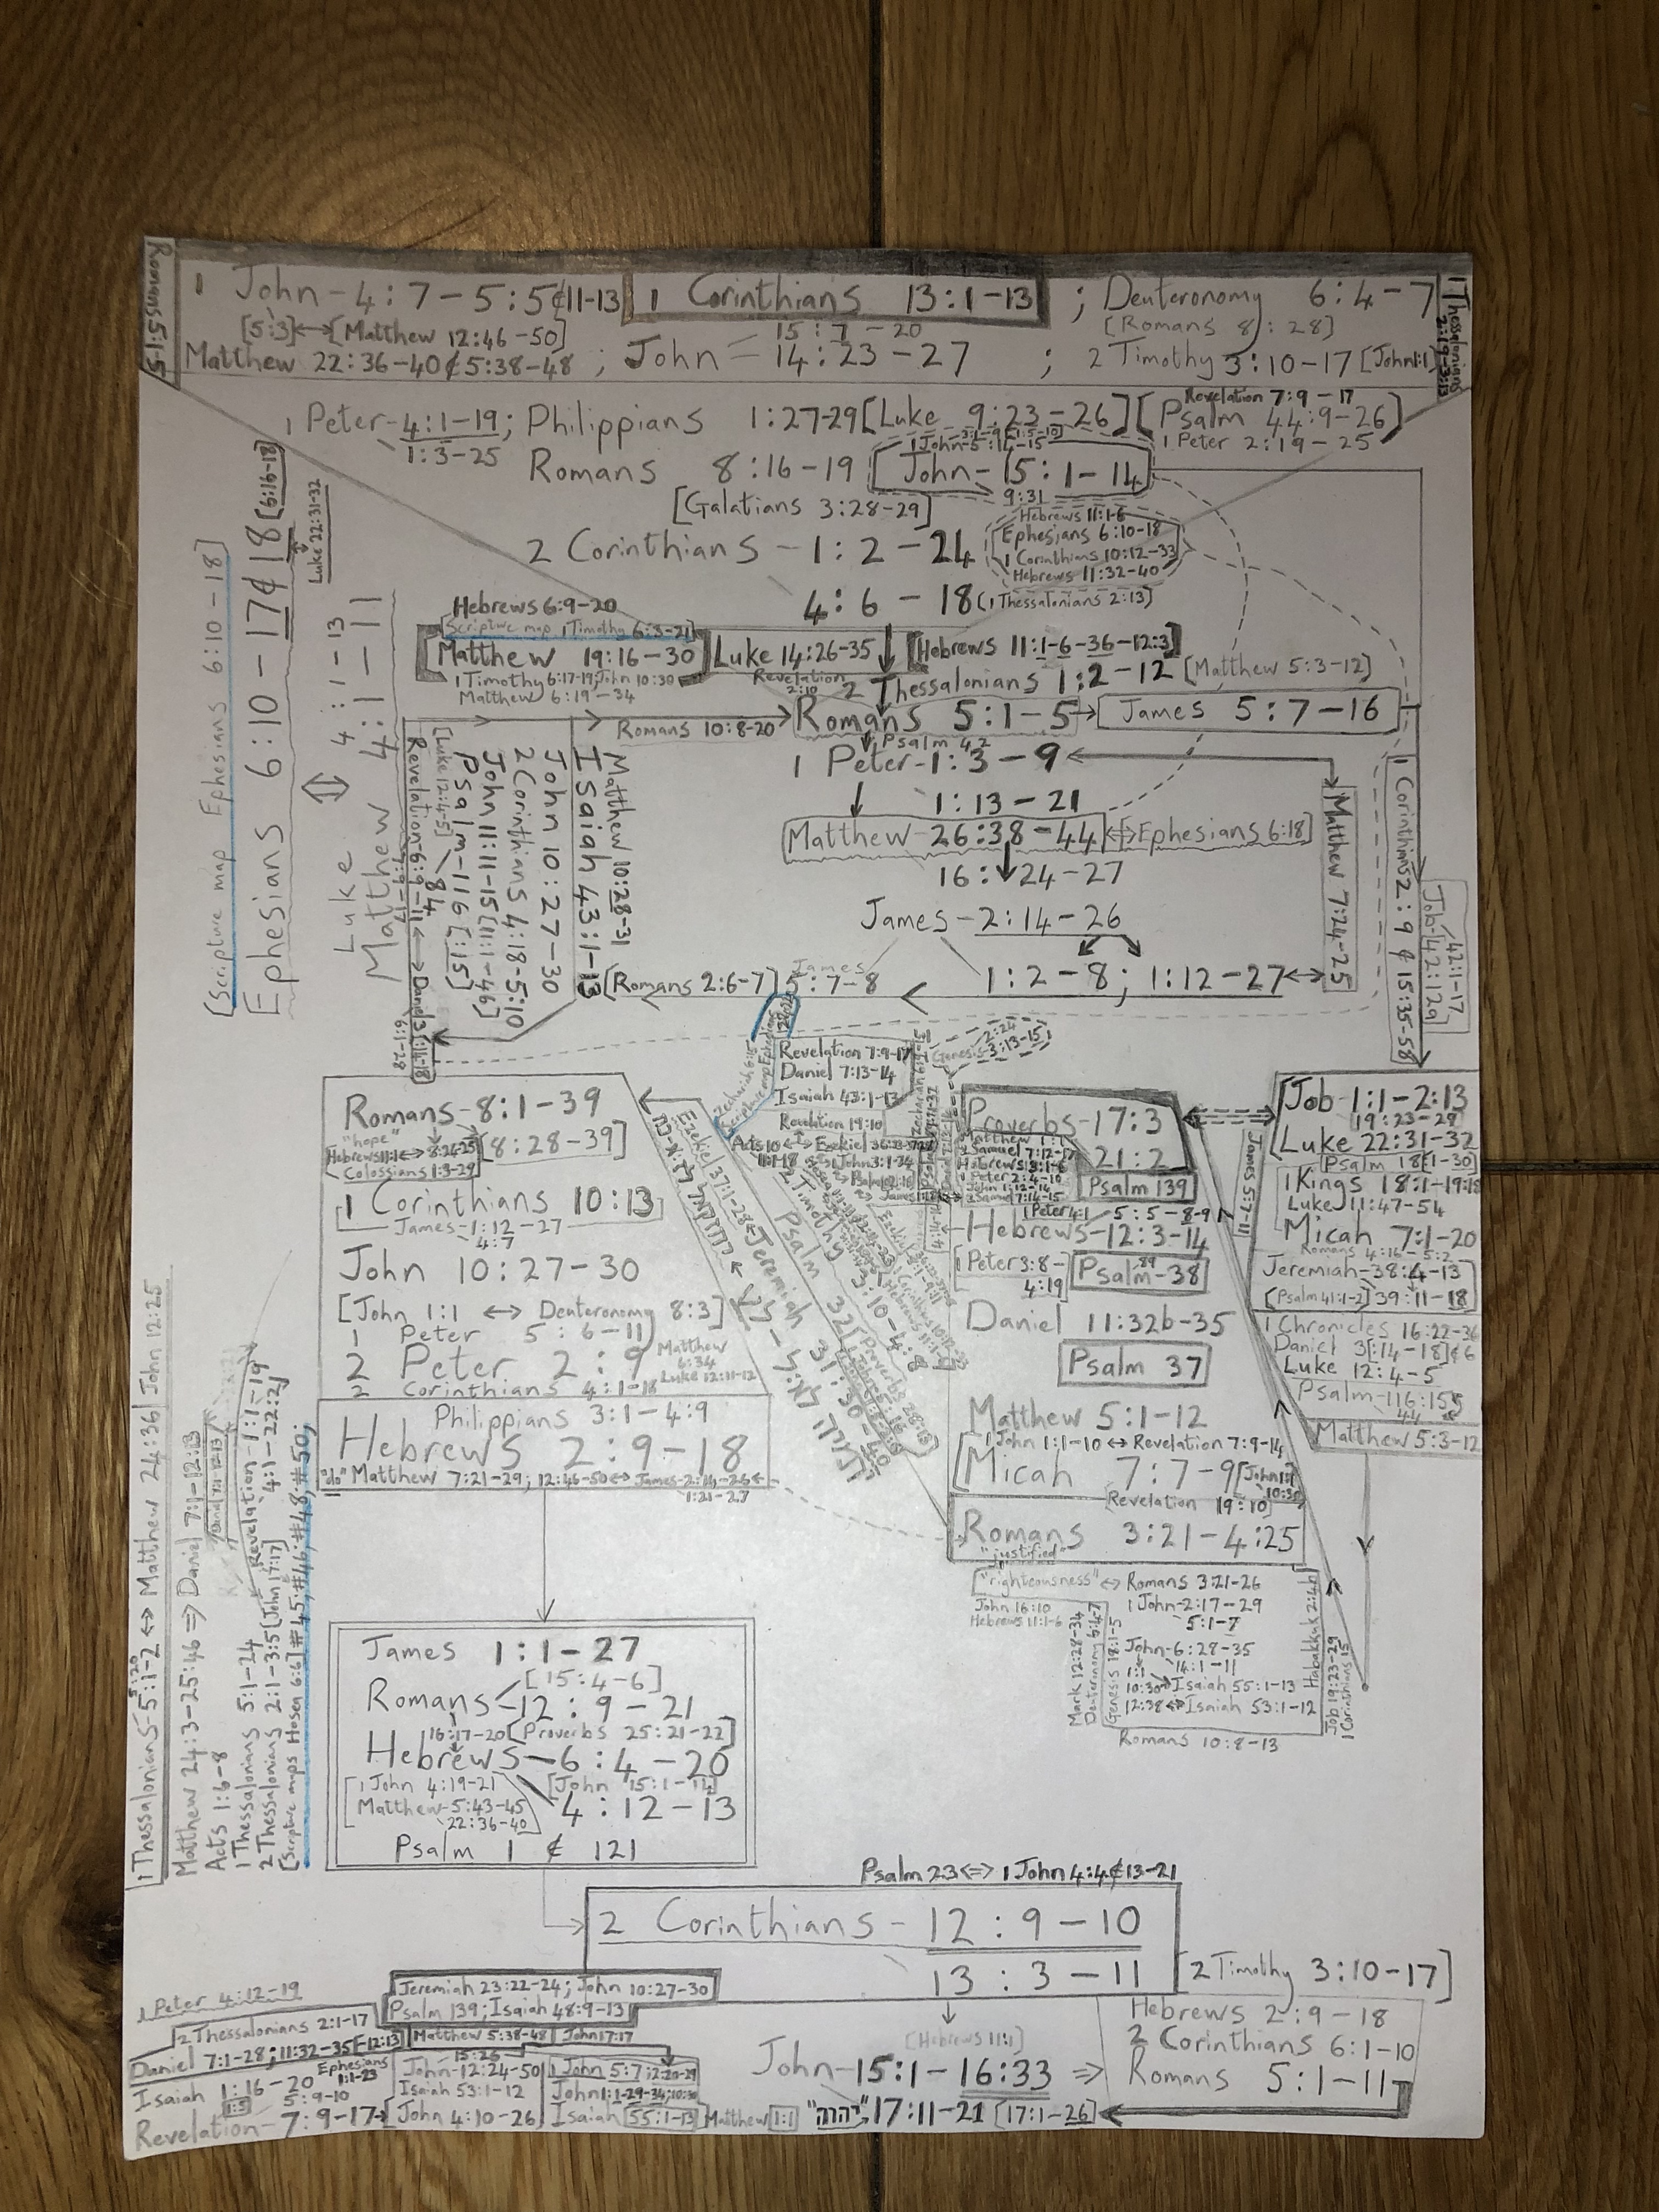 Romans 5:1-5
1 John - 4:7-5:5 ¢ 11-13
1 Corinthians 13:1-13
; Deuteronomy 6:4-7
1 Thessalonians 2:19-3:13
[5:3] ↔ [Matthew 12:46-50]
15:7-20
[Romans 8:28]
Matthew 22:36-40 ¢ 5:38-48 ; John - 14:23-27 ; 2 Timothy 3:10-17 [John 1:1]
Revelation 7:9-17
1 Peter - 4:1-19; Philippians 1:27-29 [Luke 9:23-26] [Psalm 44:9-26]
1:3-25
1 Peter 2:19-25
1 John-5:14-15
Romans 8:16-19
John - 15:1-14
9:31
[Galatians 3:28-29]
Hebrews 11:1-6
Ephesians 6:10-18
1 Corinthians 10:12-33
Hebrews 11:32-40
2 Corinthians - 1:2-24
4:6-18 (1 Thessalonians 2:13)
[Scripture map Ephesians 6:10-18]
Ephesians 6:10-17 ¢ 18 [6:16-18]
Luke 22:31-32
Luke 4:1-13
Matthew 4:1-11
Hebrews 6:9-20
Scripture map 1 Timothy 6:3-21
Matthew 19:16-30
Luke 14:26-35
[Hebrews 11:1-6-36-12:3]
1 Timothy 6:17-19; John 10:30
Matthew 6:19-34
Revelation 2:10
2 Thessalonians 1:2-12 [Matthew 5:3-12]
Romans 10:8-20
Romans 5:1-5 → James 5:7-16
Psalm 42
1 Peter - 1:3-9
1:13-21
Matthew - 26:38-44 ↔ [Ephesians 6:18]
16:24-27
James - 2:14-26
1:2-8; 1:12-27 ↔
Matthew 7:24-25
James
[Romans 2:6-7] 5:7-8
1 Corinthians 2:9 ¢ 15:35-58
Job-[42:12a]
42:1-17
Matthew 10:28-31
Isaiah 43:1-13
John 10:27-30
2 Corinthians 4:18-5:10
John 11:11-15 [11:1-46]
Psalm-116 [:15]
84
[Luke 12:4-5]
Revelation-6:9-11 ↔ Daniel 3:14-18
7:9-17
6:1-28
Romans-8:1-39
"hope"
Hebrews 11:1 ↔ 8:24-25
[8:28-39]
Colossians 1:3-29
1 Corinthians 10:13
James-1:12-27
4:7
John 10:27-30
[John 1:1 ↔ Deuteronomy 8:3]
1 Peter 5:6-11
2 Peter 2:9
Matthew 6:34
Luke 12:11-12
2 Corinthians 4:1-18
Philippians 3:1-4:9
Hebrews 2:9-18
"do" Matthew 7:21-29; 12:46-50 ↔ James-2:14-26
1:21-27
Ezekiel 37:1-28
Jeremiah 31:30-40
Psalm 32
2 Timothy 3:10-4:8
Revelation 7:9-17
Daniel 7:13-14
Isaiah 43:1-13
Revelation 19:10
Acts 10
Genesis 2:24
3:13-15
Proverbs-17:3
21:2
Psalm 139
Matthew 1:1
Hebrews 1:1-6
1 Peter 2:4-10
John 1:12-14
2 Samuel 7:14-15
1 Peter 4:1
5:5-8-9
Hebrews-12:3-14
[1 Peter 3:8-4:19]
89
Psalm-38
Daniel 11:32b-35
Psalm 37
Matthew 5:1-12
1 John 1:1-10 ↔ Revelation 7:9-14
Micah 7:7-9
[John 1:1
10:30]
[Revelation 19:10]
Romans 3:21-4:25
"justified"
"righteousness" ↔ Romans 3:21-26
John 16:10
Hebrews 11:1-6
1 John-2:17-29
5:1-7
John-6:28-35
1:1
14:1-11
10:30 ↔ Isaiah 55:1-13
12:38 ↔ Isaiah 53:1-12
Mark 12:28-34
Deuteronomy 6:4-7
Genesis 18:1-5
Habakkuk 2:4b
Romans 10:8-13
Job 19:23-29
1 Corinthians 15
James 5:7-11
Job 1:1-2:13
19:23-29
Luke 22:31-32
Psalm 18[1-30]
1 Kings 18:1-19:18
Luke 11:47-54
Micah 7:1-20
Romans 4:16-5:2
Jeremiah-38:4-13
[Psalm 41:1-2] 39:11-18
1 Chronicles 16:22-36
Daniel 3[:14-18] ¢ 6
Luke 12:4-5
Psalm-116:15
44
Matthew 5:3-12
1 Thessalonians-5:1-2 ↔ Matthew 24:36 | John 12:25
5:20
Matthew 24:3-25:46 ⇒ Daniel 7:1-12:13
Acts 1:6-8
1 Thessalonians 5:1-24
Revelation-1:1-19
4:1-22:21
2 Thessalonians 2:1-3:5 [John 17:17]
[Scripture maps Hosea 6:6] #45; #46; #48; #50;
James 1:1-27
[15:4-6]
Romans-12:9-21
16:17-20 [Proverbs 25:21-22]
Hebrews-6:4-20
[1 John 4:19-21
[John 15:1-14]
Matthew-5:43-45
22:36-40
4:12-13
Psalm 1 ¢ 121
Psalm 23 ⇔ 1 John 4:4 ¢ 13-21
2 Corinthians - 12:9-10
13:3-11
[2 Timothy 3:10-17]
Jeremiah 23:22-24; John 10:27-30
Psalm 139; Isaiah 48:9-13
1 Peter 4:12-19
2 Thessalonians 2:1-17
Matthew 5:38-48
John 17:17
Daniel 7:1-28; 11:32-35 [-12:13]
Isaiah 1:16-20
1:5
Ephesians 1:1-23
5:9-10
Revelation-7:9-17 →
15:26
John-12:24-50
Isaiah 53:1-12
John 4:10-26
1 John 5:7; 2:20-29
John 1:1-29-34; 10:30
Isaiah 55:1-13
Matthew 1:1
[Hebrews 11:1]
John-15:1-16:33 ⇒
"יהוה" 17:11-21 [17:1-26]
Hebrews 2:9-18
2 Corinthians 6:1-10
Romans 5:1-11